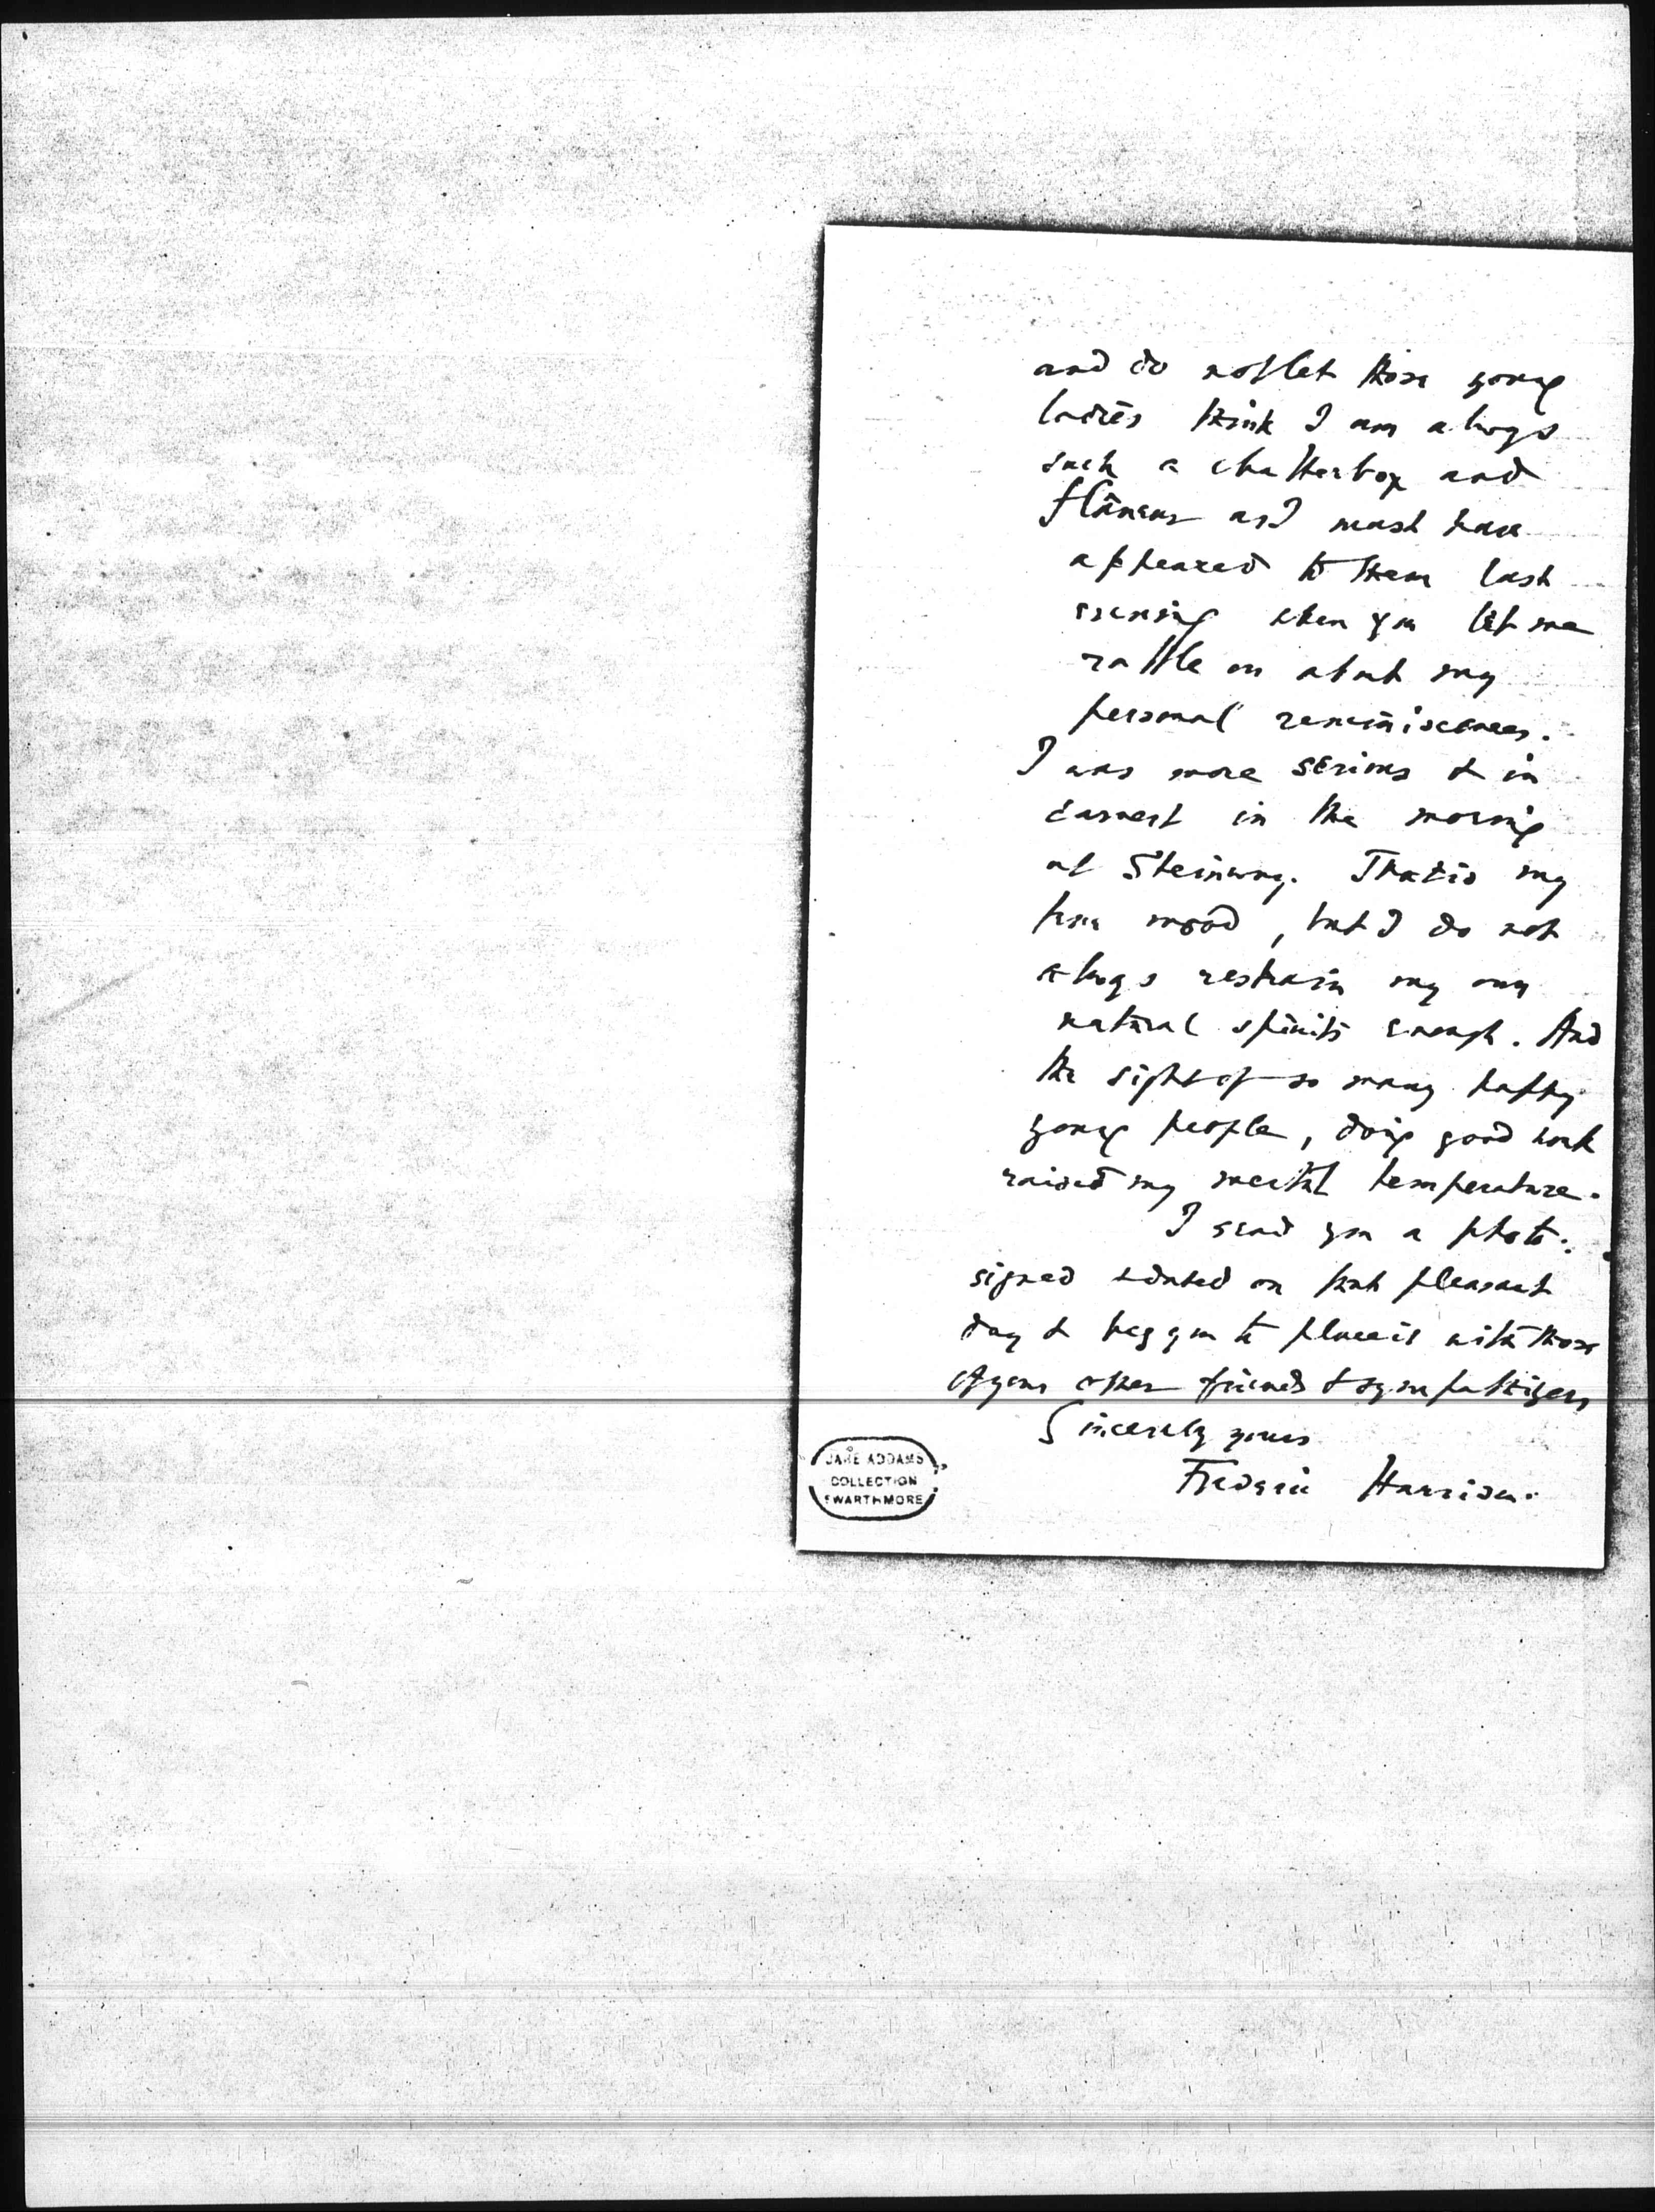 and do not let those young
ladies think I am always
such a chatterbox and
flâneur as I must have
appeared to them last
evening when you let me
rattle on about my
personal reminiscences.
I was more serious & in
earnest in the morning
at Steinway. That is my
true mood, but I do not
always restrain my own
natural spirits enough. And
the sight of so many happy
young people, doing good work
raised my mental temperature.
I send you a photo:
signed & dated on that pleasant
day & beg you to place it with those
of your other friends & sympathizers
Sincerely yours
Frederic Harrison.
JANE ADDAMS
COLLECTION
SWARTHMORE